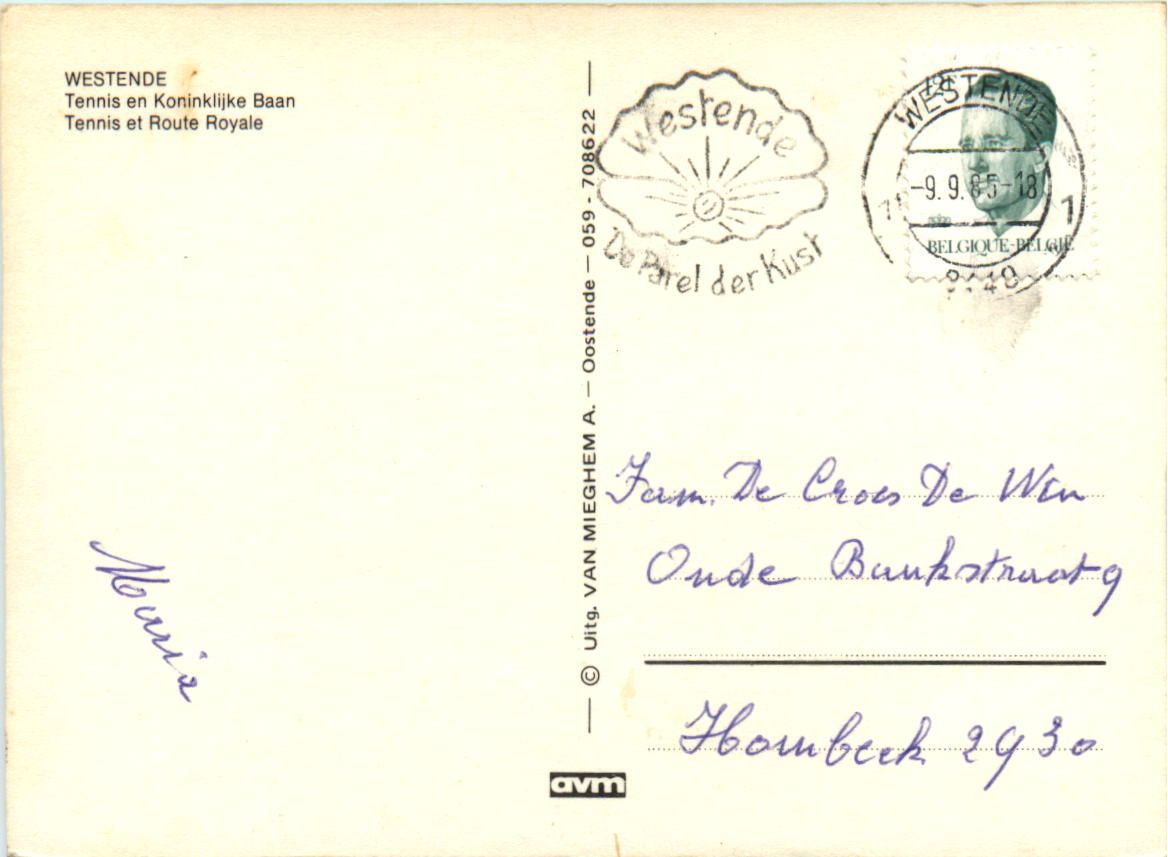 WESTENDE
Tennis en Koninklijke Baan
Tennis et Route Royale
Maria
© Uitg. VAN MIEGHEM A. — Oostende — 059 - 708622
avm
Westende
De Parel der Kust
WESTENDE
-9.9.85-18
1
BELGIQUE-BELGIË
Fam. De Croes De Win
Oude Baukstraat 9
Hombeek 2930